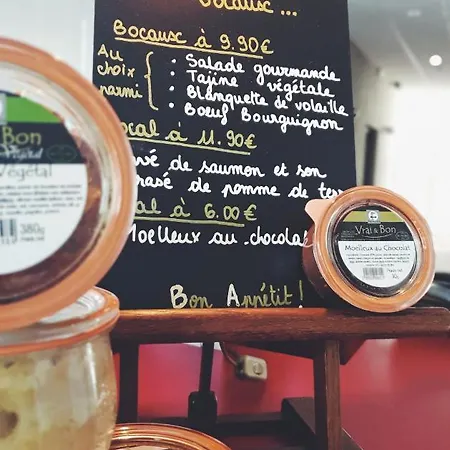 Bocausc à 9.90€
Au choix parmi
: Salade gourmande
: Tajine végétale
: Blanquette de volaille
: Bœuf Bourguignon
ocal à 11.90€
vé de saumon et son
rasé de pomme de ter
al à 6.00€
Moelleux au chocola
Bon Appétit !
Bon
Végétal
380g
Vrai & Bon
Moelleux au Chocolat